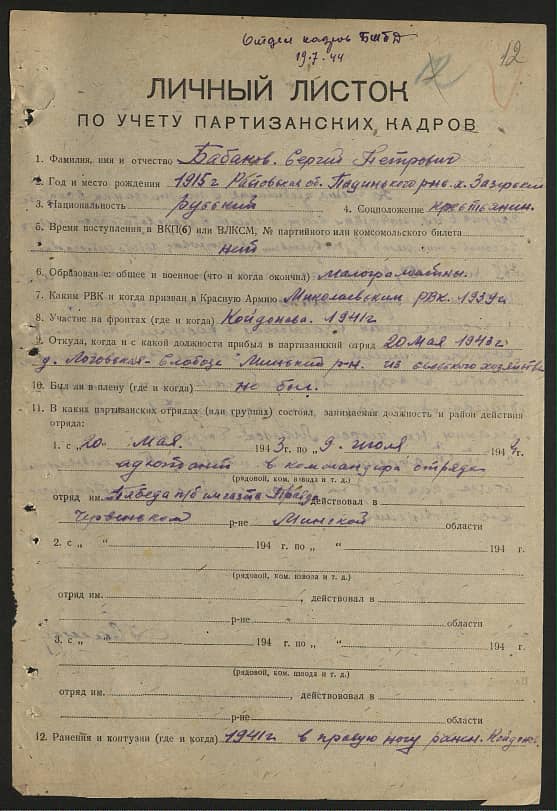 Отдел кадров БШПД
19.7.44
12
12
ЛИЧНЫЙ ЛИСТОК
ПО УЧЕТУ ПАРТИЗАНСКИХ КАДРОВ
1. Фамилия, имя и отчество Бабанов Сергий Петрович
2. Год и место рождения 1915 г
3. Национальность Руский 4. Соцположение крестьянин
5. Время поступления в ВКП(б) или ВЛКСМ, № партийного или комсомольского билета
ний
6. Образован с: общее и военное (что и когда окончил) малограмотны.
7. Каким РВК и когда призван в Красную Армию Миколаевским РВК. 1939 г
8. Участие на фронтах (где и когда) Койданова. 1941 г
9. Откуда, когда и с какой должности прибыл в партизанский отряд 20 мая 1943 г
д. Логовская-Слобода Минский р-н. из сельского хозяйства
10. Был ли в плену (где и когда) не был.
11. В каких партизанских отрядах (или группах) состоял, занимаемая должность и район действия
отряда:
1. с „20 мая 1943 г. по „9 июля 1944 г.
адютант в командира отряда
(рядовой, ком. взвода и т. д.)
отряд им. Победа п/б им газета Правда действовал в
Червеньком р-не Минской области
2. с „ “ 194 г. по „ “ 194 г.
(рядовой, ком. взвода и т. д.)
отряд им. , действовал в
р-не области
3. с „ “ 194 г. по „ “ 194 г.
(рядовой, ком. взвода и т. д.)
отряд им. , действовал в
р-не области
12. Ранения и контузии (где и когда) 1941 г в правую ногу ранен. Койдон.